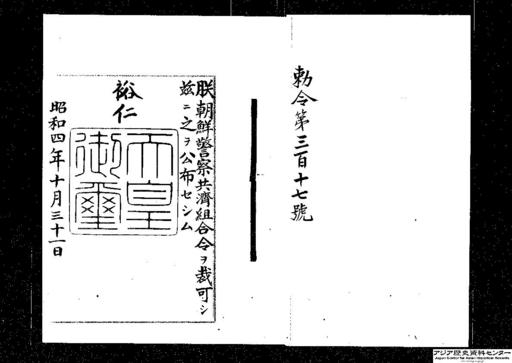 勅令第三百十七號
朕朝鮮警察共濟組合令ヲ裁可シ
玆ニ之ヲ公布セシム
裕仁
天皇
御璽
昭和四年十月三十一日
アジア歴史資料センター
Japan Center for Asian Historical Records